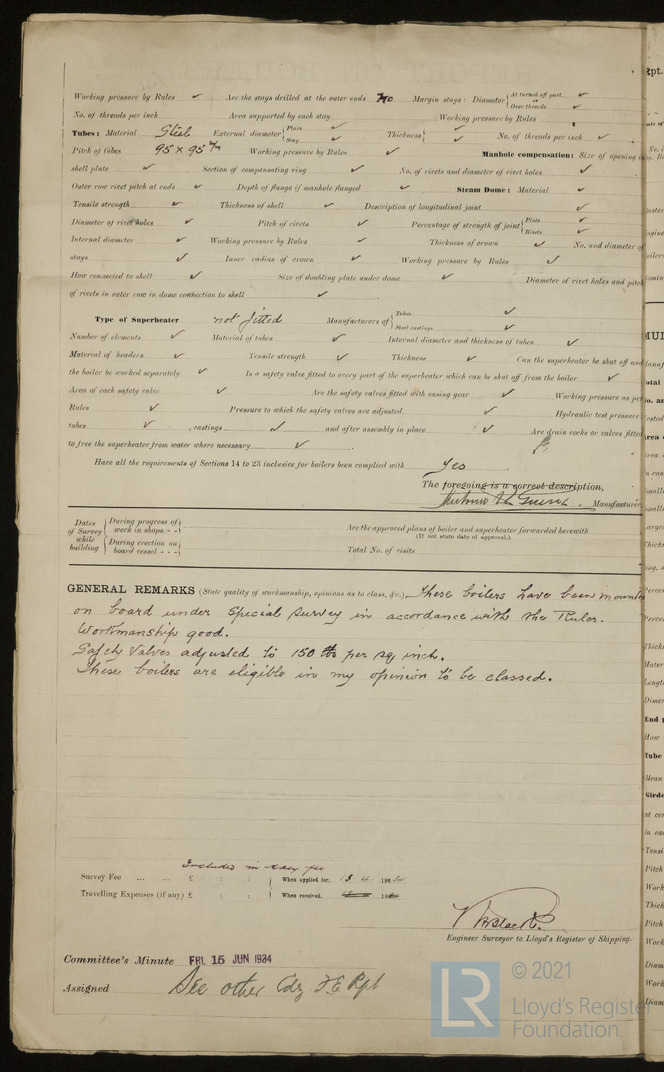 Working pressure by Rules ✓ Are the stays drilled at the outer ends No Margin stays: Diameter { At turned off part ✓ or Over threads ✓
No. of threads per inch Area supported by each stay Working pressure by Rules ✓
Tubes: Material Steel External diameter { Plain ✓ Stay ✓ Thickness { ✓ ✓ No. of threads per inch ✓
Pitch of tubes 95 x 95 Working pressure by Rules ✓ Manhole compensation: Size of opening
shell plate ✓ Section of compensating ring ✓ No. of rivets and diameter of rivet holes ✓
Outer row rivet pitch at ends ✓ Depth of flange if manhole flanged ✓ Steam Dome: Material ✓
Tensile strength ✓ Thickness of shell ✓ Description of longitudinal joint ✓
Diameter of rivet holes ✓ Pitch of rivets ✓ Percentage of strength of joint { Plate ✓ Rivets ✓
Internal diameter ✓ Working pressure by Rules ✓ Thickness of crown ✓ No. and diameter of
stays ✓ Inner radius of crown ✓ Working pressure by Rules ✓
How connected to shell ✓ Size of doubling plate under dome ✓ Diameter of rivet holes and pitch
of rivets in outer row in dome connection to shell ✓
Type of Superheater not fitted Manufacturers of { Tubes ✓ Steel castings ✓
Number of elements ✓ Material of tubes ✓ Internal diameter and thickness of tubes ✓
Material of headers ✓ Tensile strength ✓ Thickness ✓ Can the superheater be shut off and
the boiler be worked separately ✓ Is a safety valve fitted to every part of the superheater which can be shut off from the boiler ✓
Area of each safety valve ✓ Are the safety valves fitted with easing gear ✓ Working pressure as per
Rules ✓ Pressure to which the safety valves are adjusted ✓ Hydraulic test pressure:
tubes ✓, castings ✓ and after assembly in place ✓ Are drain cocks or valves fitted
to free the superheater from water where necessary ✓
Have all the requirements of Sections 14 to 23 inclusive for boilers been complied with Yes
The foregoing is a correct description,
Manufacturer.
Dates of Survey while building { During progress of work in shops - - { During erection on board vessel - - - {
Are the approved plans of boiler and superheater forwarded herewith
(If not state date of approval.)
Total No. of visits
GENERAL REMARKS (State quality of workmanship, opinions as to class, &c.) These boilers have been mounted
on board under Special Survey in accordance with the Rules.
Workmanship good.
Safety Valves adjusted to 150 lbs per sq inch.
These boilers are eligible in my opinion to be classed.
Included in
Survey Fee ... ... £ : : When applied for, 13.4.1934
Travelling Expenses (if any) £ : : When received, 19
Engineer Surveyor to Lloyd's Register of Shipping.
Committee's Minute FRI. 15 JUN 1934
Assigned See other Rpt
© 2021
LR
Lloyd's Register
Foundation